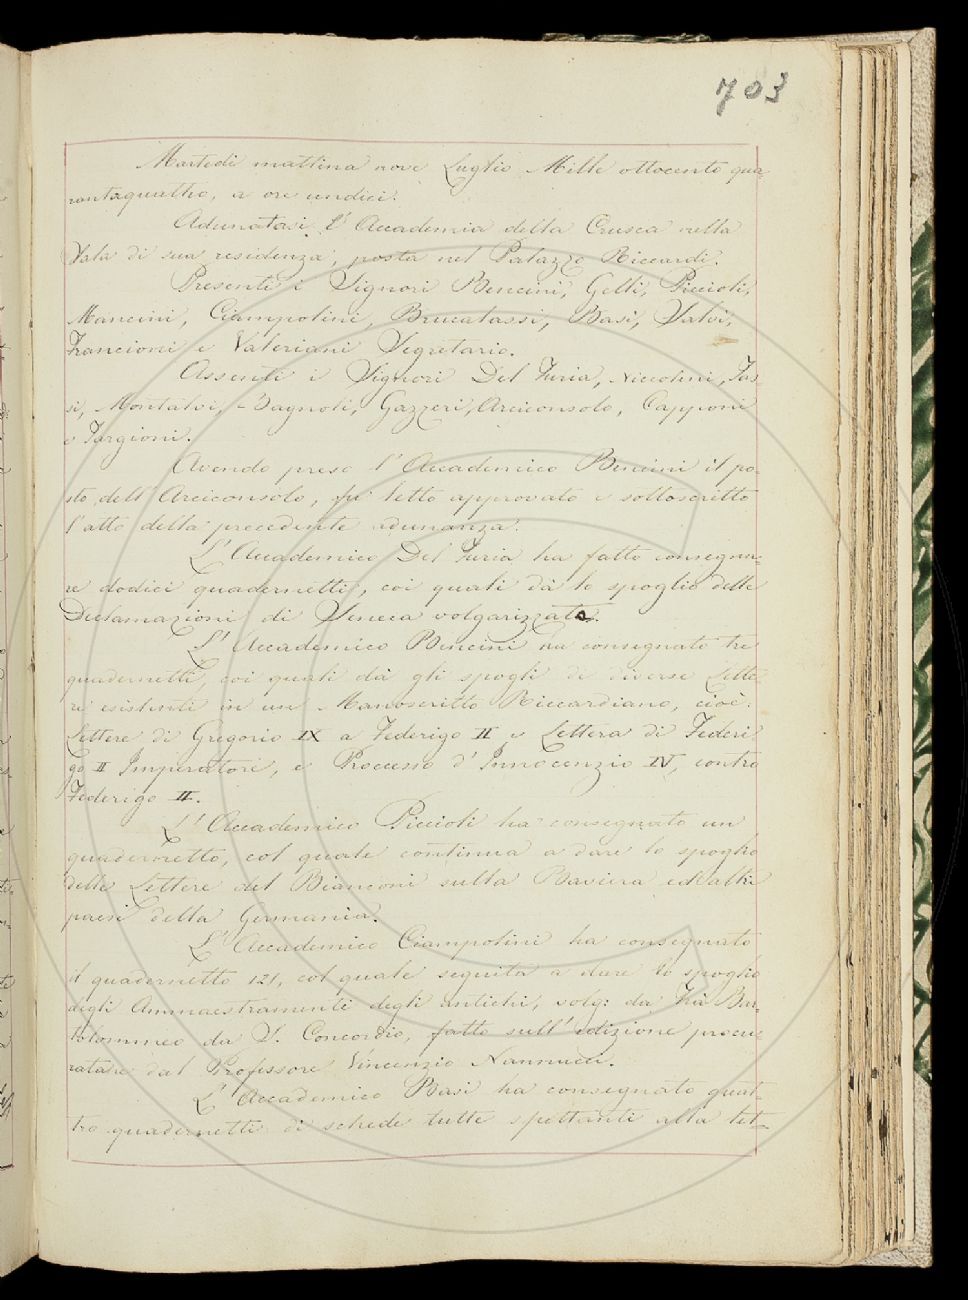 703
Martedì mattina nove Luglio Mille ottocento qua-
rantaquattro, a ore undici.
Adunatasi l'Accademia della Crusca nella
Sala di sua residenza, posta nel Palazzo Riccardi.
Presenti i Signori Bencini, Gelli, Piccioli,
Mancini, Ciampolini, Brucalassi, Basi, Salvi,
Francioni e Valeriani Segretario.
Assenti i Signori Del Furia, Niccolini, Tas-
si, Montalvi, Bagnoli, Gazzeri, Arciconsolo, Capponi
e Targioni.
Avendo preso l'Accademico Bencini il po-
sto dell'Arciconsolo, fu letto approvato e sottoscritto
l'atto della precedente adunanza.
L'Accademico Del Furia ha fatto consegna-
re dodici quadernetti, coi quali dà lo spoglio delle
Declamazioni di Seneca volgarizzate.
L'Accademico Bencini ha consegnato tre
quadernetti, coi quali dà gli spogli di diverse Lette-
re esistenti in un Manoscritto Riccardiano, cioè:
Lettere di Gregorio IX a Federigo II e Lettera di Federi-
go II Imperatori, e Processo d'Innocenzio IV, contro
Federigo II.
L'Accademico Piccioli ha consegnato un
quadernetto, col quale continua a dare lo spoglio
delle Lettere del Bianconi sulla Baviera ed altri
paesi della Germania.
L'Accademico Ciampolini ha consegnato
il quadernetto 121, col quale seguita a dare lo spoglio
degli Ammaestramenti degli antichi, volg: da Fra Bar-
tolommeo da S. Concordio, fatto sull'edizione procu-
rata dal Professore Vincenzio Nannucci.
L'Accademico Basi ha consegnato quat-
tro quadernetti di schede tutte spettanti alla let-